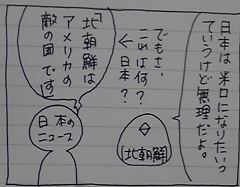 日本は米ロになりたいっ
ていうけど無理だよ。
でもさ、
これは何？
←日本？
北朝鮮
「北朝鮮は
アメリカの
敵の国です」
日本の
ニュース